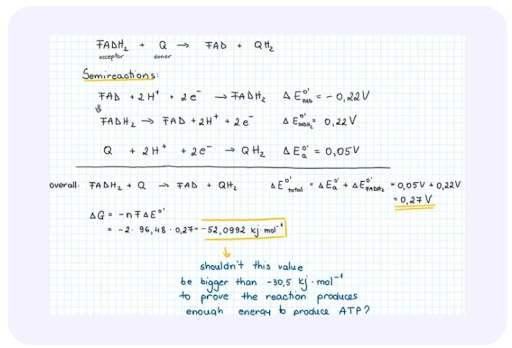 FADH₂ + Q → FAD + QH₂
acceptor donor
Semireactions:
FAD + 2H⁺ + 2e⁻ → FADH₂ ΔE°'FAD = -0,22V
⇓
FADH₂ → FAD + 2H⁺ + 2e⁻ ΔE°'FADH₂ = 0,22V
Q + 2H⁺ + 2e⁻ → QH₂ ΔE°'Q = 0,05V
overall: FADH₂ + Q → FAD + QH₂ ΔE°'total = ΔE°'Q + ΔE°'FADH₂ = 0,05V + 0,22V
= 0,27V
ΔG = -nFΔE°'
= -2· 96,48 · 0,27= -52,0992 kj·mol⁻¹
↓
shouldn't this value
be bigger than -30,5 kj·mol⁻¹
to prove the reaction produces
enough energy to produce ATP?